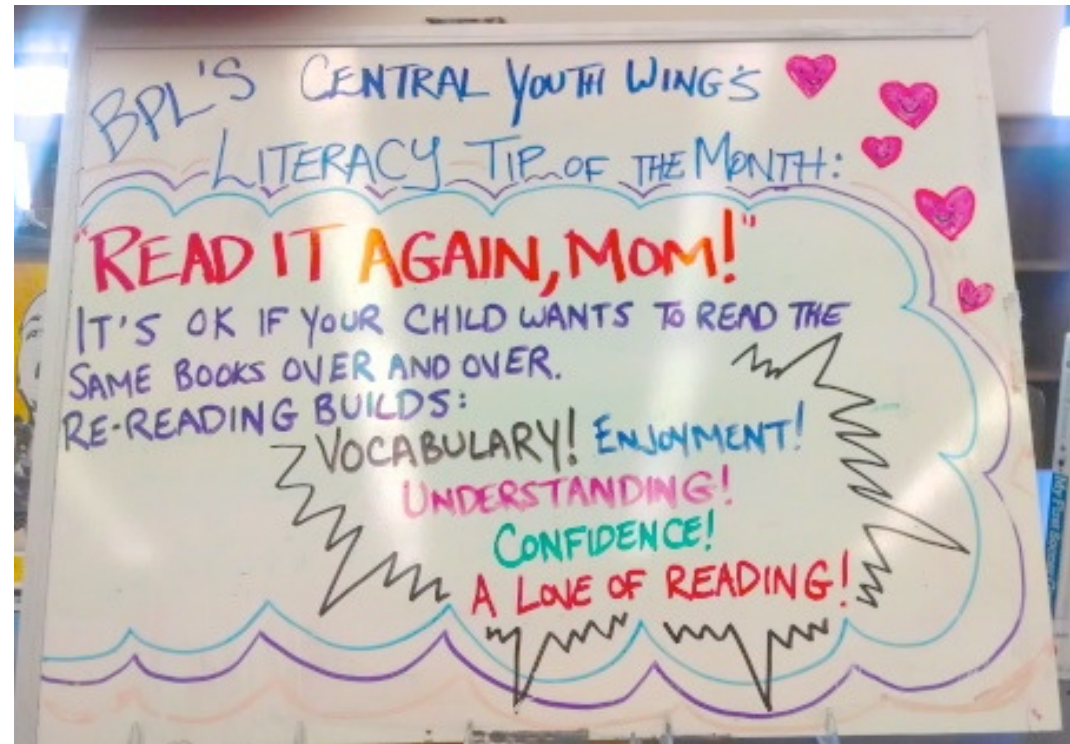 BPL'S CENTRAL YOUTH WING'S
LITERACY TIP OF THE MONTH:
"READ IT AGAIN, MOM!"
IT'S OK IF YOUR CHILD WANTS TO READ THE
SAME BOOKS OVER AND OVER.
RE-READING BUILDS:
VOCABULARY! ENJOYMENT!
UNDERSTANDING!
CONFIDENCE!
A LOVE OF READING!
My First Soccer